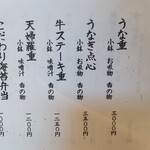 うな重
小鉢 お吸物 香の物
三〇〇〇
うなぎ点心
小鉢 お吸物 香の物
二五〇〇
牛ステーキ重
小鉢 味噌汁 香の物
天婦羅重
小鉢 味噌汁 香の物
一二〇〇
こだわり海苔弁当